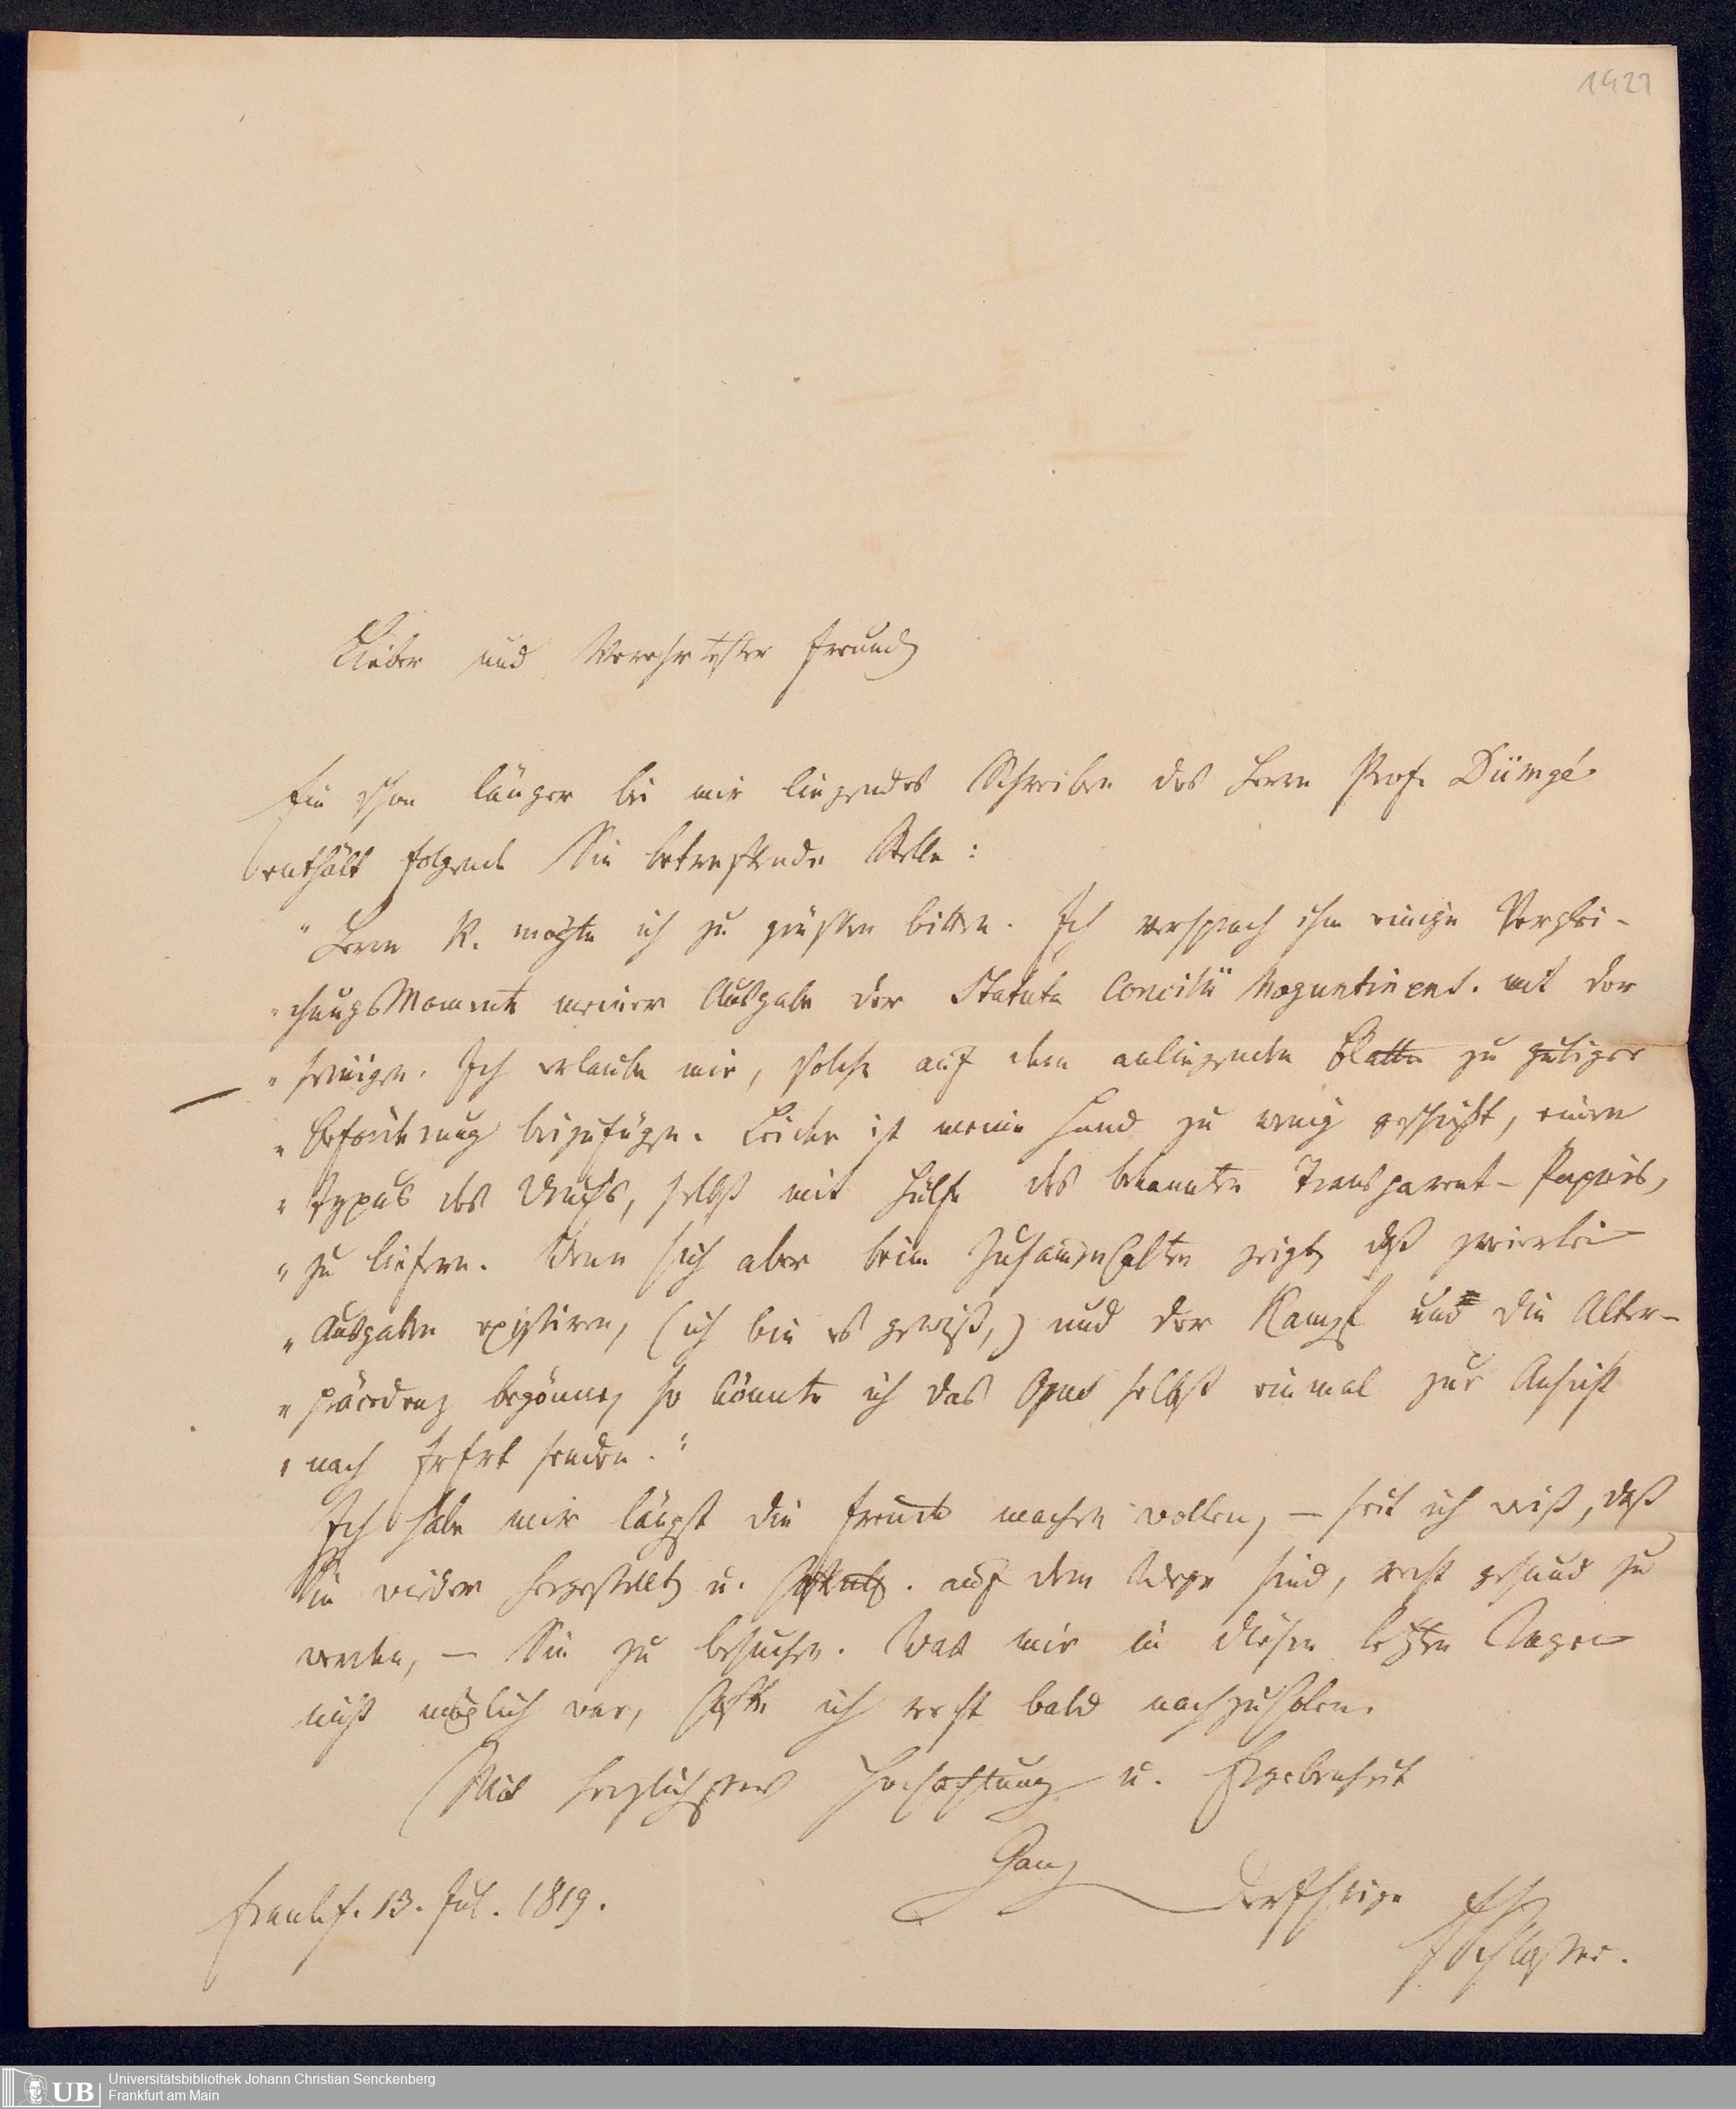 1421
Lieber und Verehrtester Freund
Ein schon länger bei mir liegendes Schreiben des Herrn Prof. Dümgé
enthält folgende Sie betreffende Stelle:
"Herrn K. mögte ich zu grüßen bitten. Ich versprach ihm einige Verglei-
"chungsMomente meiner Ausgabe der Statuta Concilii Moguntinens. mit der
"seinigen. Ich erlaube mir, solche auf dem anliegenden Blatte zu gütiger
"Beförderung beizufügen. Leider ist meine Hand zu wenig geschickt, einen
"Typus des Drucks, selbst mit Hülfe des bekannten Transparent-Papiers,
"zu liefern. Wenn sich aber beim Zusammenhalten zeigt, daß zweierlei
"Ausgaben existiren, (ich bin es gewiß,) und der Kampf um die Alter-
"präcedenz begönne, so könnte ich das Opus selbst einmal zur Ansicht
"nach Frfrt senden."
Ich habe mir längst die Freude machen wollen, – seit ich weiß, daß
Sie wieder hergestellt u. auf dem Wege sind, recht gesund zu
werden, – Sie zu besuchen. Was mir in diesen letzten Tagen
nicht möglich war, hoffe ich recht bald nachzuholen.
Mit herzlichster Hochachtung u. Ergebenheit
Ganz
Frankf. 13. Jul. 1819.
Schlosser.
UB
Universitätsbibliothek Johann Christian Senckenberg
Frankfurt am Main